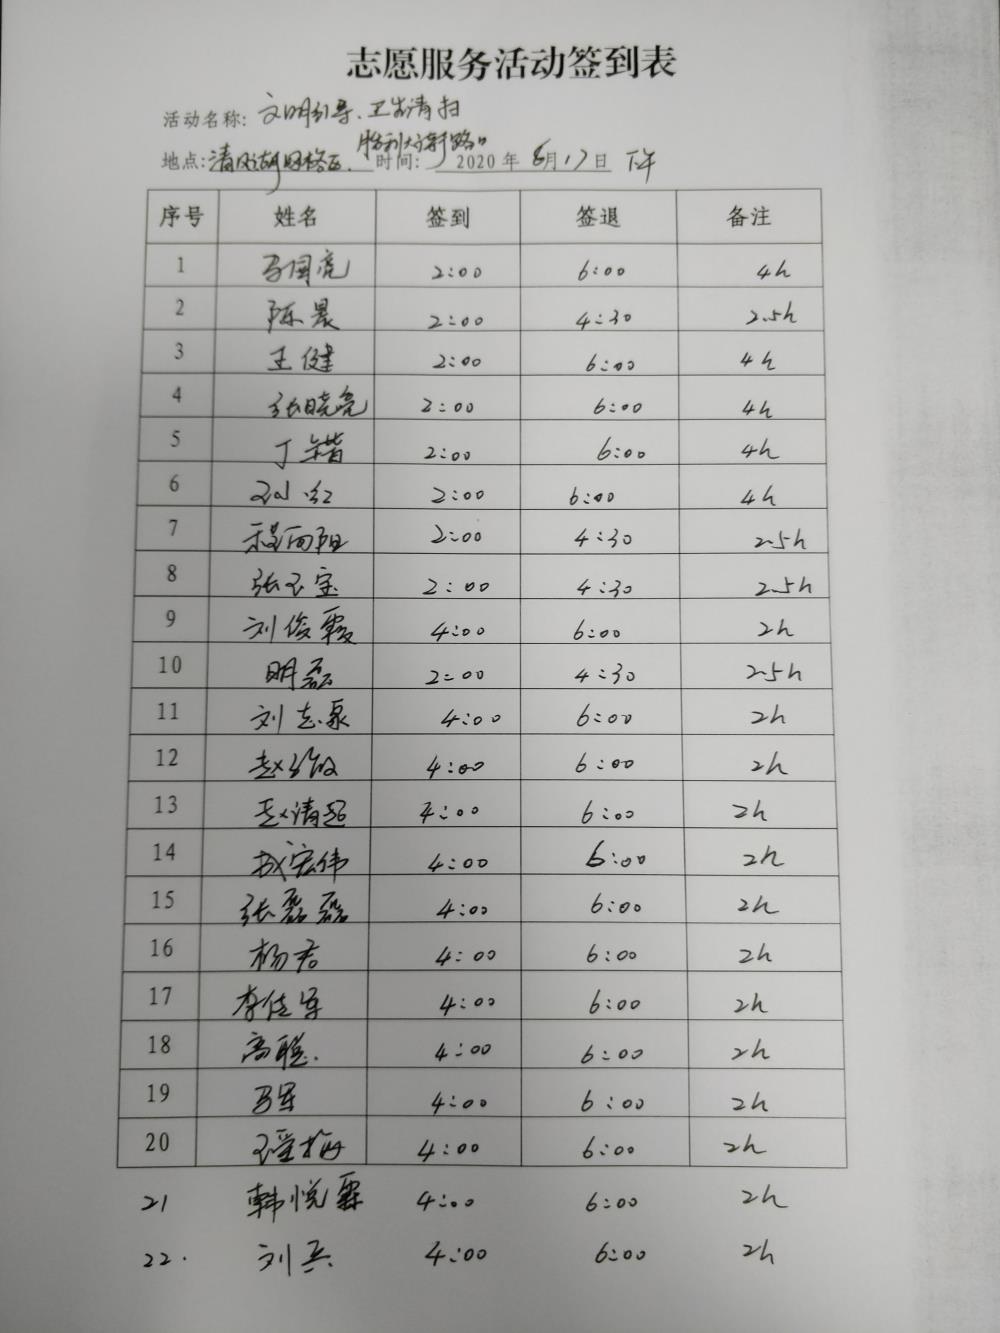 志愿服务活动签到表
活动名称: 文明引导、卫生清扫
地点: 清风湖网格区、胜利大街路口 时间: 2020年8月17日 下午
序号 姓名 签到 签退 备注
1 马国亮 2:00 6:00 4h
2 陈晨 2:00 4:30 2.5h
3 王健 2:00 6:00 4h
4 张晓亮 2:00 6:00 4h
5 丁锴 2:00 6:00 4h
6 刘红 2:00 6:00 4h
7 程向阳 2:00 4:30 2.5h
8 张玉宝 2:00 4:30 2.5h
9 刘俊霞 4:00 6:00 2h
10 明磊 2:00 4:30 2.5h
11 刘志泉 4:00 6:00 2h
12 赵 4:00 6:00 2h
13 赵清超 4:00 6:00 2h
14 宏伟 4:00 6:00 2h
15 张磊磊 4:00 6:00 2h
16 杨君 4:00 6:00 2h
17 李佳 4:00 6:00 2h
18 高聪. 4:00 6:00 2h
19 马军 4:00 6:00 2h
20 梅 4:00 6:00 2h
21 韩悦霖 4:00 6:00 2h
22. 刘兵 4:00 6:00 2h